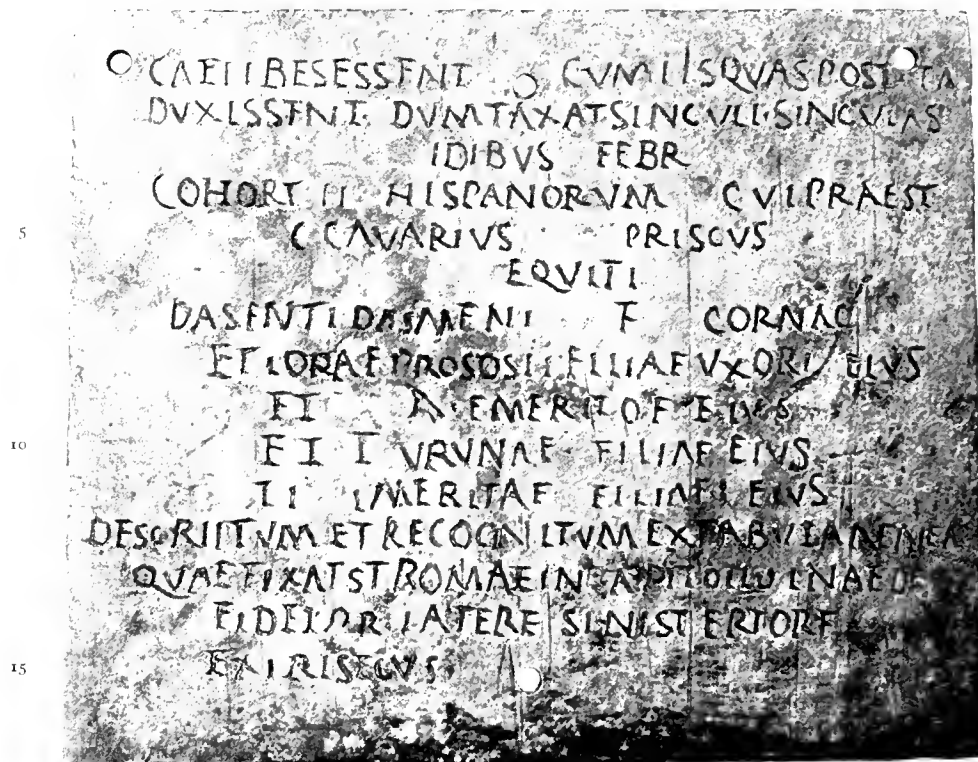 CAELIBESESSENT CUMIISQVASPOSTEA
DVXISSENT DVMTAXATSINGVLI·SINGVLAS
IDIBVS FEBR
COHORT II HISPANORVM CVIPRAEST
5 C CAVARIVS PRISCVS
EQVITI
DASENTI DASMENI F CORNAC
ETIORAEPROSOSII FILIAEVXORI EIVS
ET EMERITOF EIVS
10 ET TVRVNAE FILIAEEIVS
ET EMERITAE FILIAE EIVS
DESCRIITVM ET RECOGNITVM EX TABVLA AENEA
QVAEFIXAEST ROMAEIN CAPITOLIO INAEDE
FIDEIPR LATERE SINISTERIORE
15 EXTRISECVS